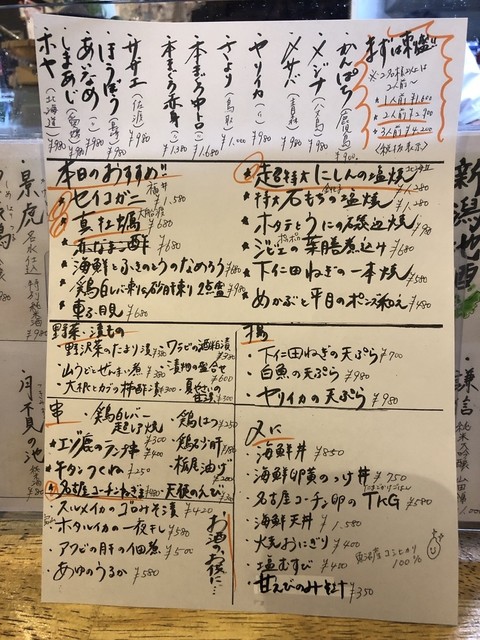 まずは刺盛!!
※2名様以上は2人前〜
1人前 ¥1,400
2人前 ¥2,900
3人前 ¥4,200
(税抜表示)
かんぱち (鹿児島) ¥900
メジナ (八丈島) ¥980
〆サバ (青森) ¥980
ヤリイカ ¥980
さより (鳥取) ¥1,000
本まぐろ中トロ ¥1,680
本まぐろ赤身 ¥1,380
サザエ (佐渡) ¥980
ほうぼう (長崎) ¥980
あいなめ ¥980
しまあじ (愛媛) ¥980
ホヤ (北海道) ¥980
本日のおすすめ!!
★セイコガニ 福井 ¥1,580
★真牡蠣 ¥680
★赤なまこ酢 ¥680
★海鮮とふきのとうのなめろう ¥980
★鶏白レバー刺と砂肝刺 2点盛 ¥980
★車子貝 ¥680
★超特大にしんの塩焼 北海道 ¥1,280
★特大石もちの塩焼 ¥1,280
★ホタテとうにの磯辺焼
★ジビエの葉膳煮込み ¥680
★下仁田ねぎの一本焼 ¥580
★めかぶと平目のポン酢和え ¥480
野菜・漬もの
・野沢菜のたまり漬 ¥380
・ワラビの酒粕漬
・山うどとぜんまい煮 ¥380
・漬物の盛合せ ¥600
・大根とカブの柿酢漬 ¥300
揚
・下仁田ねぎの天ぷら ¥700
・白魚の天ぷら ¥980
・ヤリイカの天ぷら ¥980
串
・鶏白レバー超レア焼 ¥300
・鶏はつ ¥250
★エゾ鹿のランプ串 ¥400
・鶏砂肝
★牛タンつくね ¥250
・栃尾油げ
★名古屋コーチンねぎま ¥480
・天使のえび
・スルメイカのゴロみそ漬 ¥420
・ホタルイカの一夜干し ¥580
・アワビの肝の佃煮 ¥500
・あゆのうるか ¥580
お酒のお供に…
〆に
・海鮮丼 ¥850
・海鮮卵黄のっけ丼 ¥750
・名古屋コーチン卵のTKG ¥580
・海鮮天丼 ¥1,580
・焼おにぎり ¥400
・塩むすび ¥400
魚沼産コシヒカリ100%
・甘えびのみそ汁 ¥350
新潟地酒
・謙信
純米大吟醸
・景虎
名水仕込 特別純米酒
・月不見の池